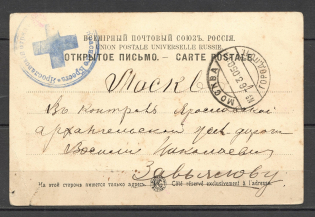 ВСЕМІРНЫЙ ПОЧТОВЫЙ СОЮЗЪ. РОССІЯ.
UNION POSTALE UNIVERSELLE RUSSIE.
ОТКРЫТОЕ ПИСЬМО. — CARTE POSTALE.
МОСКВА
Москва
Въ контроль Ярославско
Архангельской жел дороги
Василію Николаевичу
Завьялову
На этой сторонѣ пишется только адресъ.
Côté réservé exclusivement à l'adresse.